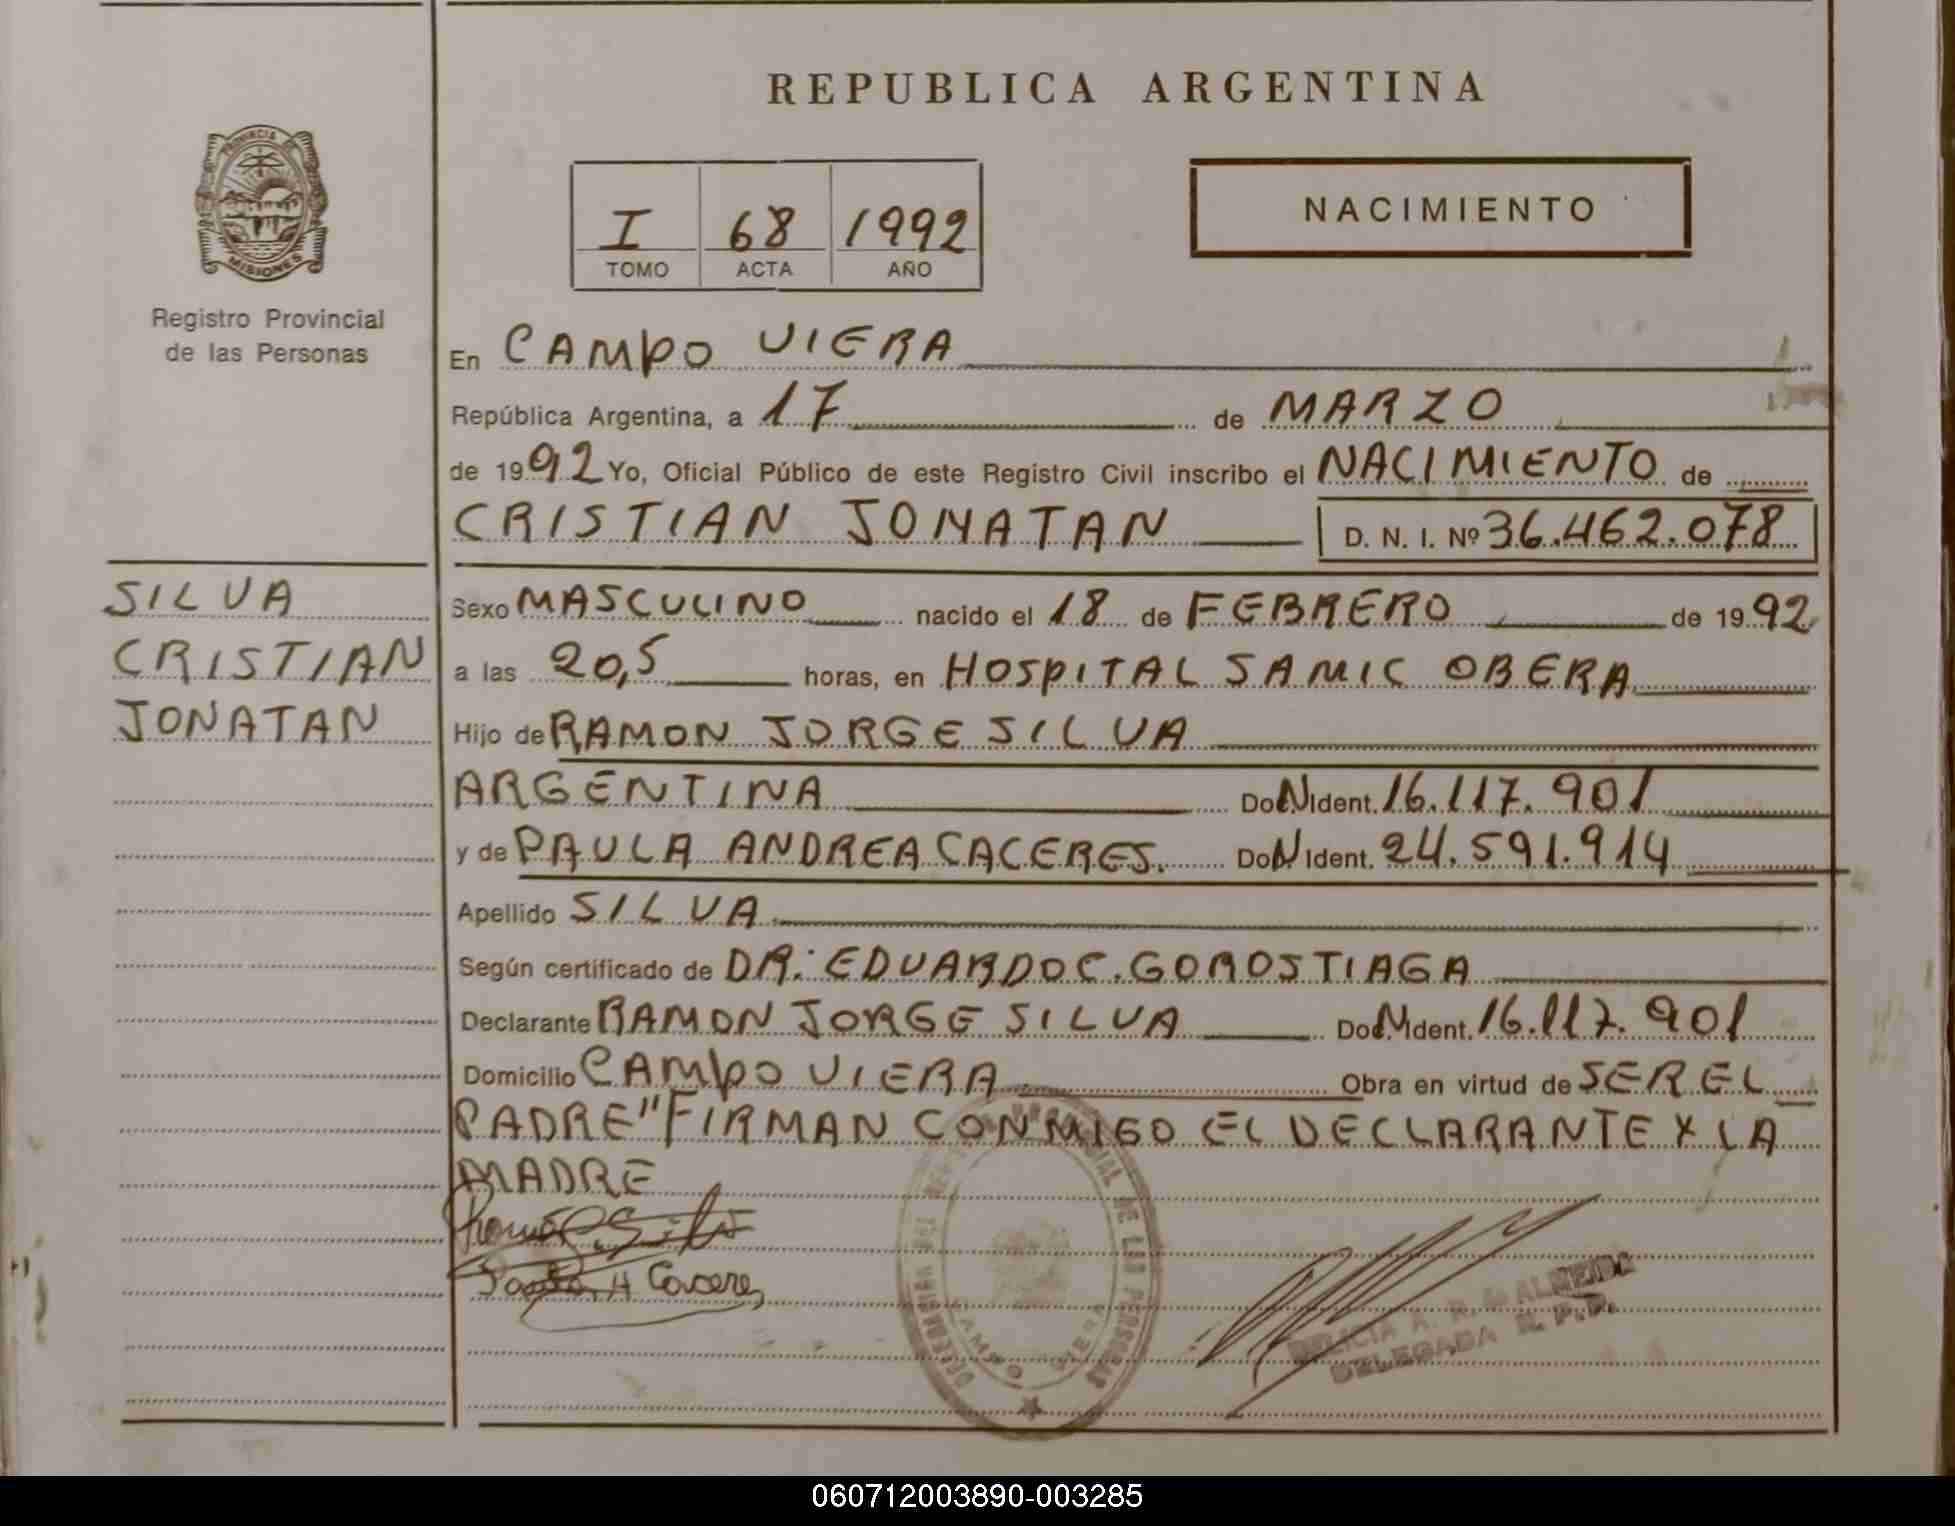 REPUBLICA ARGENTINA
PROVINCIA DE
MISIONES
Registro Provincial
de las Personas
I 68 1992
TOMO ACTA AÑO
NACIMIENTO
En CAMPO VIERA
República Argentina, a 17 de MARZO
de 1992 Yo, Oficial Público de este Registro Civil inscribo el NACIMIENTO de
CRISTIAN JONATAN D. N. I. Nº 36.462.078
SILVA
CRISTIAN
JONATAN
Sexo MASCULINO nacido el 18 de FEBRERO de 1992
a las 20,5 horas, en HOSPITAL SAMIC OBERA
Hijo de RAMON JORGE SILVA
ARGENTINA Doc. Ident. 16.117.901
y de PAULA ANDREA CACERES. Doc. Ident. 24.591.914
Apellido SILVA
Según certificado de DR. EDUARDO C. GOROSTIAGA
Declarante RAMON JORGE SILVA Doc. Ident. 16.117.901
Domicilio CAMPO VIERA Obra en virtud de SER EL
PADRE" FIRMAN CONMIGO EL DECLARANTE Y LA
MADRE
Silva
A Caceres
DE LAS PERSONAS
CAMPO VIERA
A. R. de ALMEIDA
DELEGADA R. P. P.
060712003890-003285